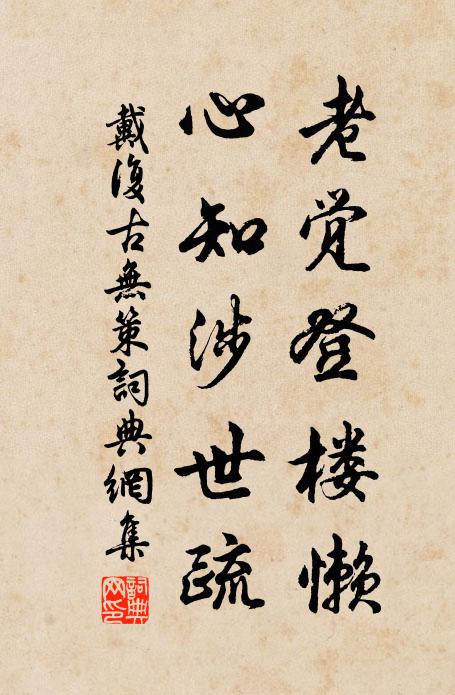 老觉登楼懒
心知涉世疏
戴復古無策詞典網集
詞典網印